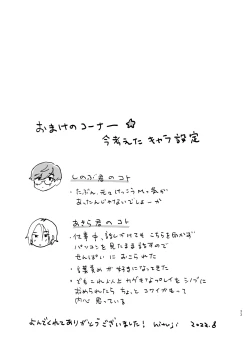 おまけのコーナー☆
今考えた キャラ設定
しのぶ君のコト
・たぶん、元々けっこうMっ気が
あったんじゃないでしょーか
あきら君のコト
・仕事中、話しかけても こちらを向かず
パソコンを見たまま話すので
せんぱい に おこられた
・言葉責め が 好きになってきた
・でもこれ以上 とか
されたらちょっと コワイかもって
内心 思っている
よんでくれてありがとうございました! hitsuji 2022.8